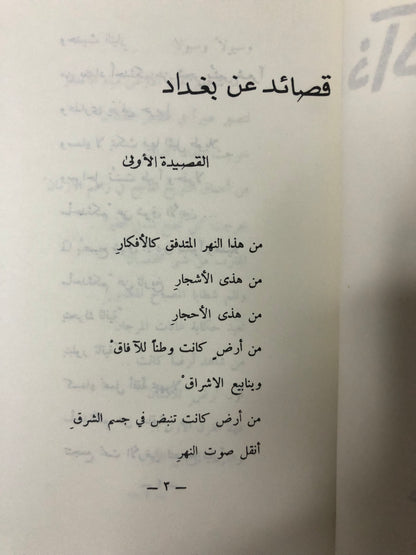 قصائد عن بغداد
القصيدة الأولى
من هذا النهر المتدفق كالأفكارِ
من هذى الأشجارِ
من هذى الأحجارِ
من أرضٍ كانت وطناً للآفاقْ
وينابيع الاشراقْ
من أرض كانت تنبض في جسم الشرقِ
أنقل صوت النهرِ
— ٣ —